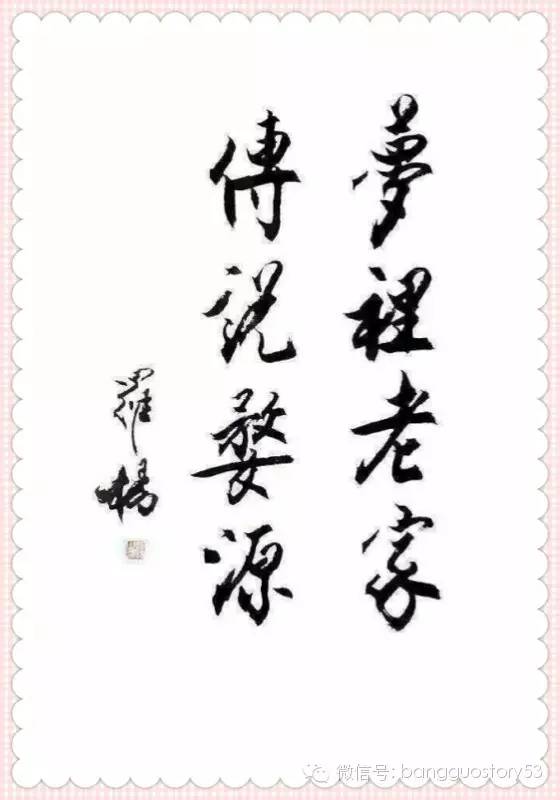 夢裡老家
傳說婺源
羅楊
微信号: bangguostory53